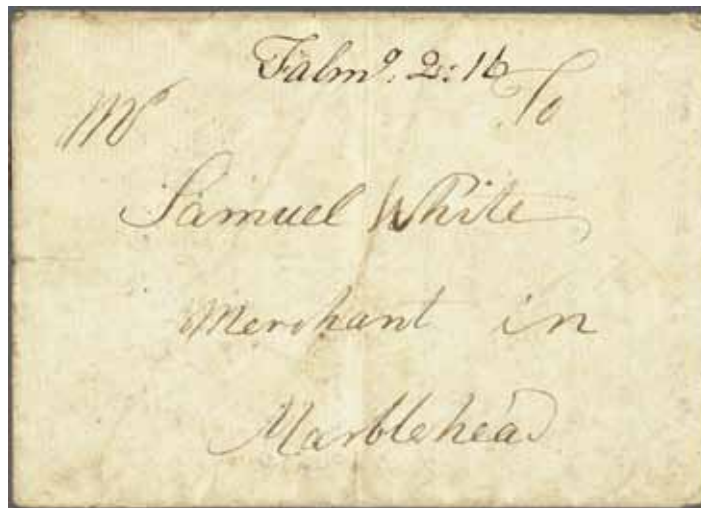 Falmº. 2:16
Mr To
Samuel White
Merchant in
Marblehead